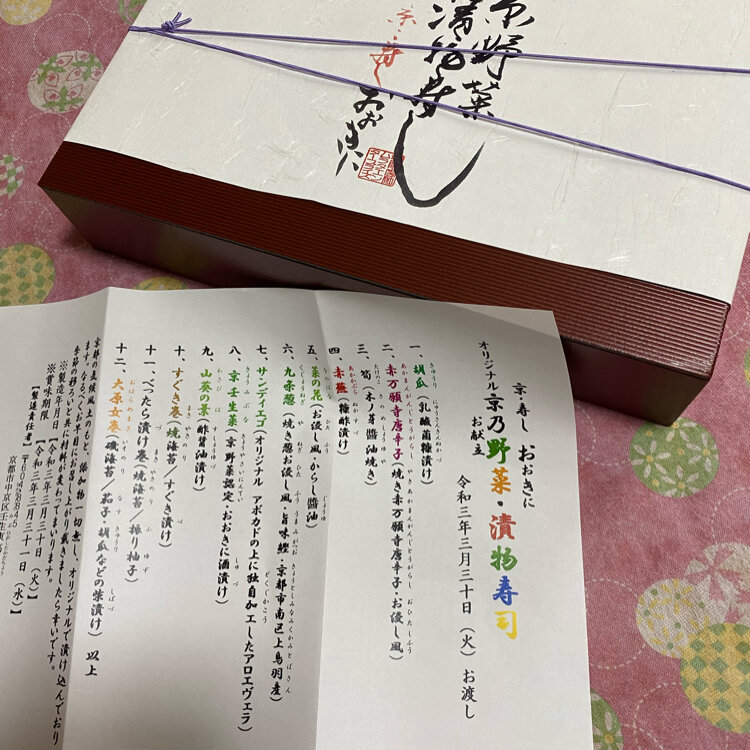 京野菜
漬物寿し
京・寿し
おおきに
京・寿し おおきに
オリジナル 京乃野菜・漬物寿司
お献立
令和三年三月三十日(火)お渡し
一、胡瓜(乳酸菌糠漬け)
二、赤万願寺唐辛子(焼き赤万願寺唐辛子・お浸し風)
三、筍(木ノ芽醬油焼き)
四、赤蕪(糠酢漬け)
五、菜の花(お浸し風・からし醬油)
六、九条葱(焼き葱お浸し風・旨味鰹・京都市南区上鳥羽産)
七、サンディエゴ(オリジナル アボカドの上に独自加工したアロエヴェラ)
八、京壬生菜(京野菜認定・おおきに酒漬け)
九、山葵の葉(酢醬油漬け)
十、すぐき巻(焼海苔/すぐき漬け)
十一、べったら漬け巻(焼海苔 振り柚子)
十二、大原女巻(磯海苔/茄子・胡瓜などの柴漬け) 以上
京都の気候風土のもと、添加物一切無し、オリジナルで漬け込んでおり
ます。なるべくお早目にお召し上がり戴きましたら幸いです。
季節の移ろいと共に材料が変わってまいります。
※製造年月日【令和三年三月三十日(火)】
※賞味期限【令和三年三月三十一日(水)】
【製造責任者】〒604-8845
京都市中京区壬生東高